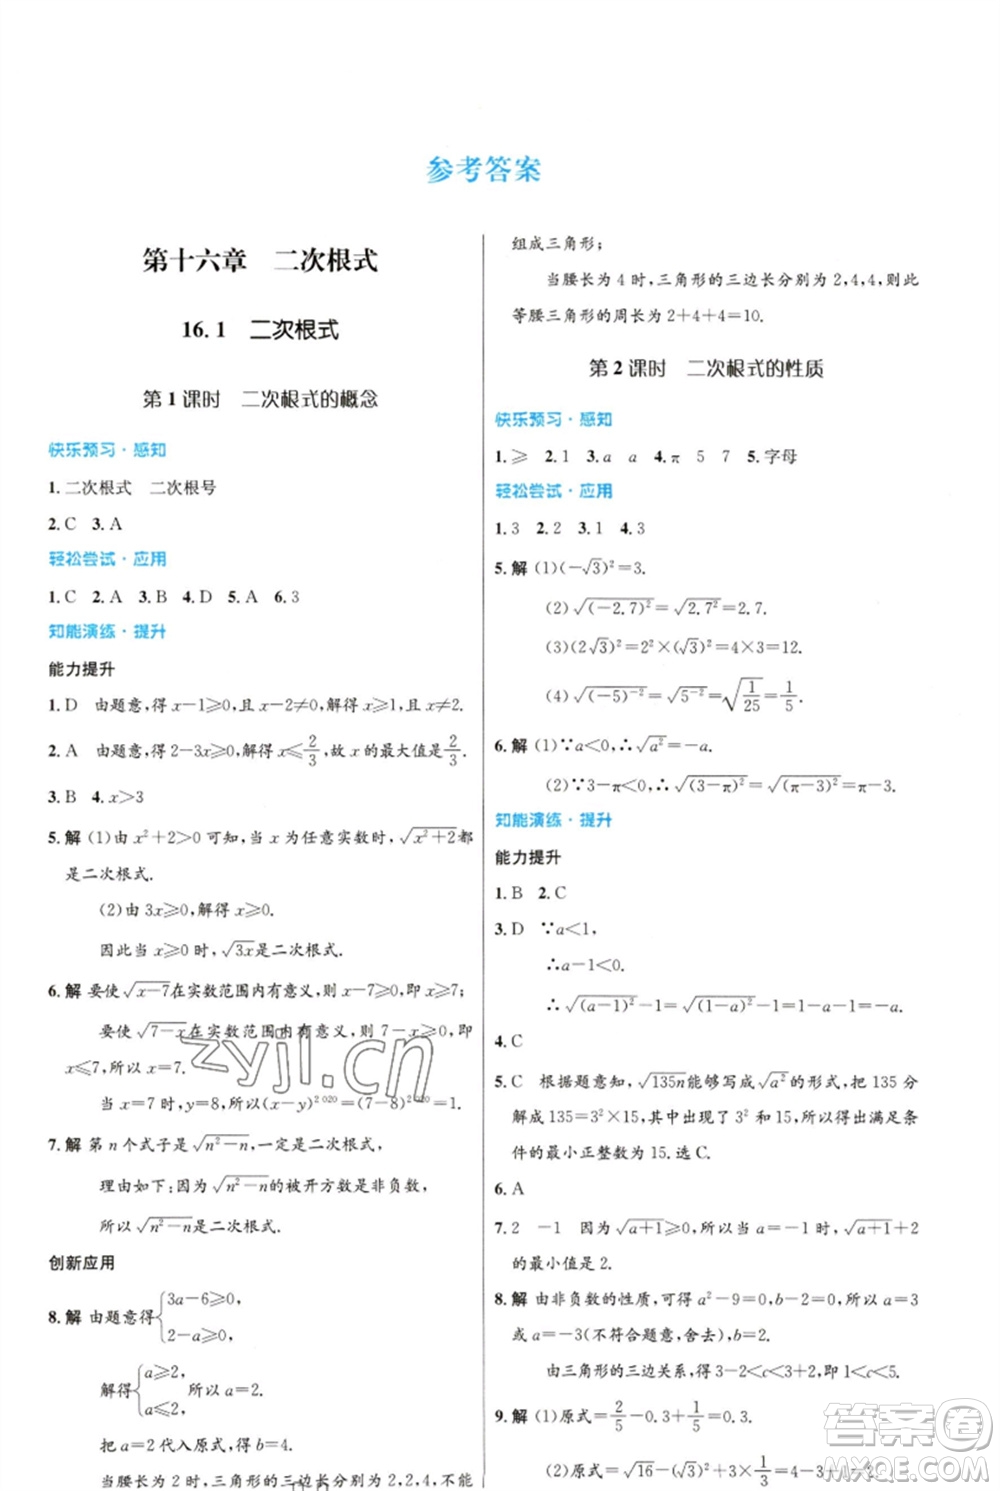 参考答案
第十六章 二次根式
16.1 二次根式
第1课时 二次根式的概念
快乐预习·感知
1.二次根式 二次根号
2.C 3.A
轻松尝试·应用
1.C 2.A 3.B 4.D 5.A 6.3
知能演练·提升
能力提升
1.D 由题意,得 x-1≥0,且 x-2≠0,解得 x≥1,且 x≠2.
2.A 由题意,得 2-3x≥0,解得 x≤2/3,故 x 的最大值是 2/3.
3.B 4.x>3
5.解 (1)由 x²+2>0 可知,当 x 为任意实数时,√(x²+2)都
是二次根式.
(2)由 3x≥0,解得 x≥0.
因此当 x≥0 时,√(3x)是二次根式.
6.解 要使√(x-7)在实数范围内有意义,则 x-7≥0,即 x≥7;
要使√(7-x)在实数范围内有意义,则 7-x≥0,即
x≤7,所以 x=7.
当 x=7 时,y=8,所以(x-y)^2 020=(7-8)^2 020=1.
7.解 第 n 个式子是√(n²-n),一定是二次根式.
理由如下:因为√(n²-n)的被开方数是非负数,
所以√(n²-n)是二次根式.
创新应用
8.解 由题意得{3a-6≥0,
2-a≥0,
解得{a≥2,
a≤2, 所以 a=2.
把 a=2 代入原式,得 b=4.
当腰长为 2 时,三角形的三边长分别为 2,2,4,不能
组成三角形;
当腰长为 4 时,三角形的三边长分别为 2,4,4,则此
等腰三角形的周长为 2+4+4=10.
第2课时 二次根式的性质
快乐预习·感知
1.≥ 2.1 3.a a 4.π 5 7 5.字母
轻松尝试·应用
1.3 2.2 3.1 4.3
5.解 (1)(-√3)²=3.
(2)√((-2.7)²)=√(2.7²)=2.7.
(3)(2√3)²=2²×(√3)²=4×3=12.
(4)√((-5)^-2)=√(5^-2)=√(1/25)=1/5.
6.解 (1)∵a<0,∴√(a²)=-a.
(2)∵3-π<0,∴√((3-π)²)=√((π-3)²)=π-3.
知能演练·提升
能力提升
1.B 2.C
3.D ∵a<1,
∴a-1<0.
∴√((a-1)²)-1=√((1-a)²)-1=1-a-1=-a.
4.C
5.C 根据题意知,√(135n)能够写成√(a²)的形式,把 135 分
解成 135=3²×15,其中出现了 3² 和 15,所以得出满足条
件的最小正整数为 15.选 C.
6.A
7.2 -1 因为√(a+1)≥0,所以当 a=-1 时,√(a+1)+2
的最小值是 2.
8.解 由非负数的性质,可得 a²-9=0,b-2=0,所以 a=3
或 a=-3(不符合题意,舍去),b=2.
由三角形的三边关系,得 3-2<c<3+2,即 1<c<5.
9.解 (1)原式=2/5-0.3+1/5=0.3.
(2)原式=√16-(√3)²×1/3=4-1=3.
zyjl.cn
答案圈